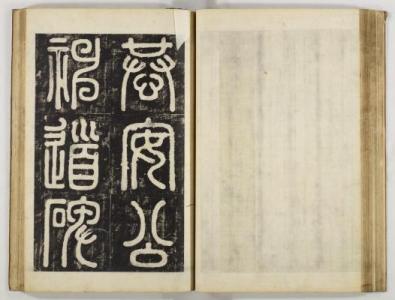 安公
神道碑